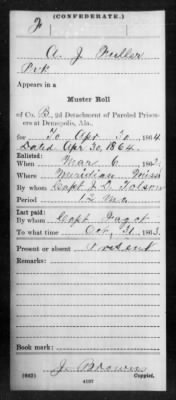 (CONFEDERATE.)
A. J. Fuller
Pvt
Appears in a
Muster Roll
of Co. B, 2d Detachment of Paroled Prison-
ers at Demopolis, Ala.
for To Apr 30, 1864
Dated Apr 30, 1864.
Enlisted:
When Mar 6, 186
Where Meridian Miss
By whom Capt J. D. Tolson
Period 12 mo
Last paid:
By whom Capt
To what time Oct. 31, 1863.
Present or absent Present
Remarks:
Book mark:
J. Brown
(662) Copyist.
4107